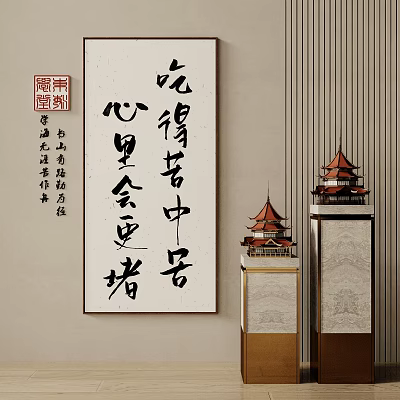 吃得苦中苦
心里会更堵
书山有路勤为径
学海无涯苦作舟